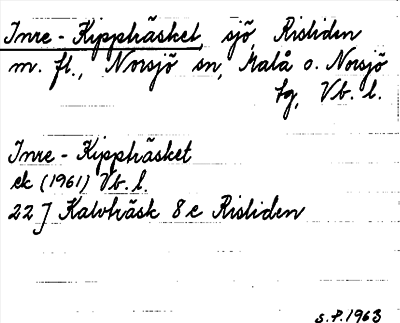 Inre-Kippträsket, sjö, Risliden
m. fl., Norsjö sn, Malå o. Norsjö
tg, Vb. l.
Inre-Kippträsket
ek (1961) Vb. l.
22 J Kalvträsk 8 c Risliden
S.P. 1963